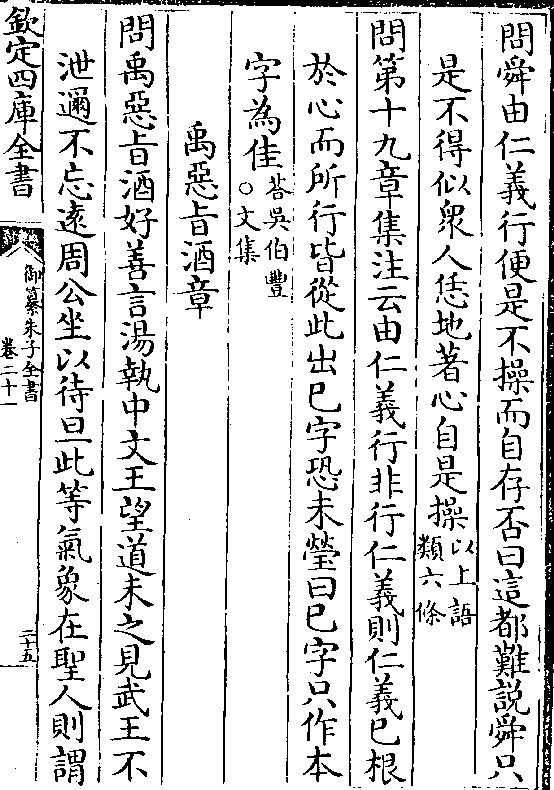 問舜由仁義行便是不操而自存否曰這都難説舜只
是不得似衆人恁地著心自是操以上語類六條
問第十九章集注云由仁義行非行仁義則仁義已根
於心而所行皆從此出已字恐未瑩曰已字只作本
字為佳荅吳伯豐○文集
禹惡旨酒章
問禹惡旨酒好善言湯執中文王望道未之見武王不
泄邇不忘逺周公坐以待旦此等氣象在聖人則謂
欽定四庫全書
御纂朱子全書
卷二十一
二十五